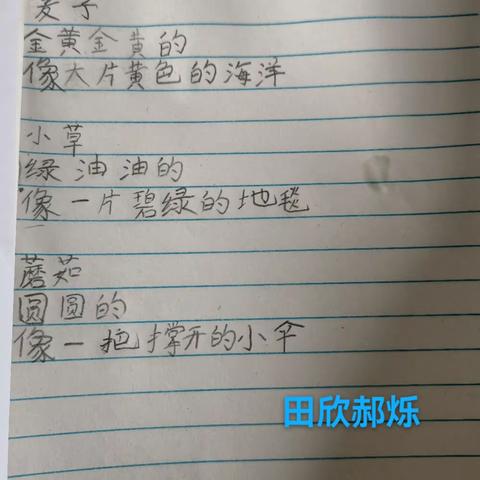 麦子
金黄金黄的
像大片黄色的海洋
小草
绿油油的
像一片碧绿的地毯
蘑茹
圆圆的
像一把撑开的小伞
田欣郝烁